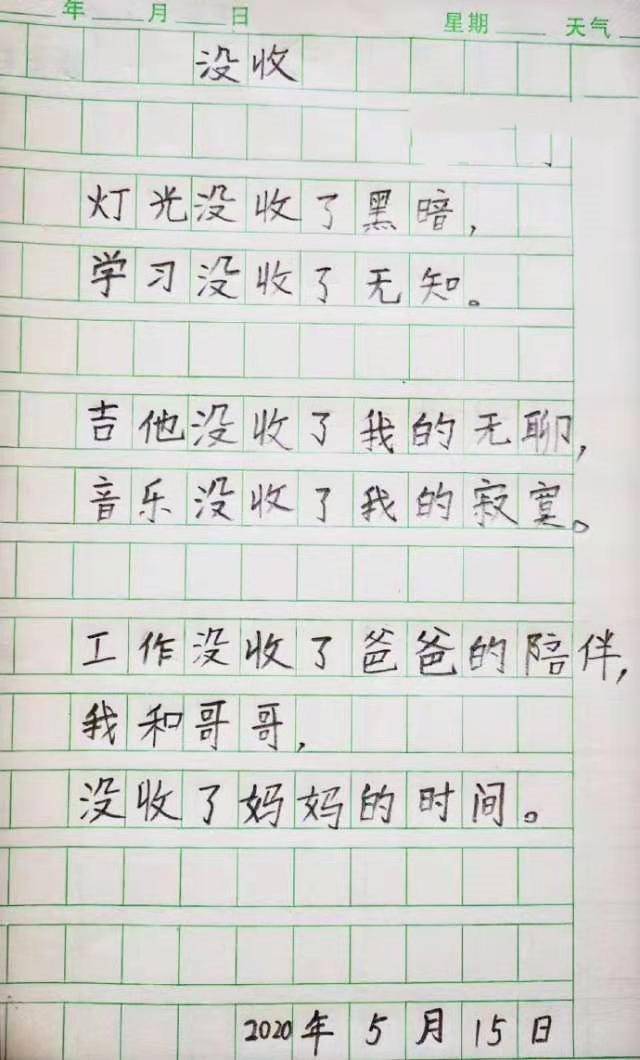 年 月 日 星期 天气
没收
灯光没收了黑暗，
学习没收了无知。
吉他没收了我的无聊，
音乐没收了我的寂寞。
工作没收了爸爸的陪伴，
我和哥哥，
没收了妈妈的时间。
2020年5月15日